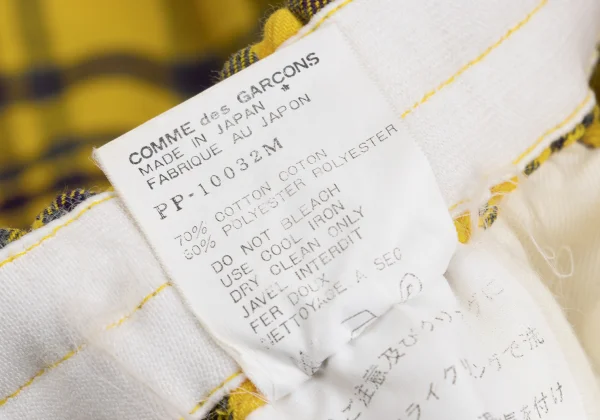 COMME des GARCONS
MADE IN JAPAN *
FABRIQUE AU JAPON
PP-10032M
70% COTTON COTON
30% POLYESTER POLYESTER
DO NOT BLEACH
USE COOL IRON
DRY CLEAN ONLY
JAVEL INTERDIT
FER DOUX
NETTOYAGE A SEC
ご注意及びハリングに
ライクリングで洗
気を付け